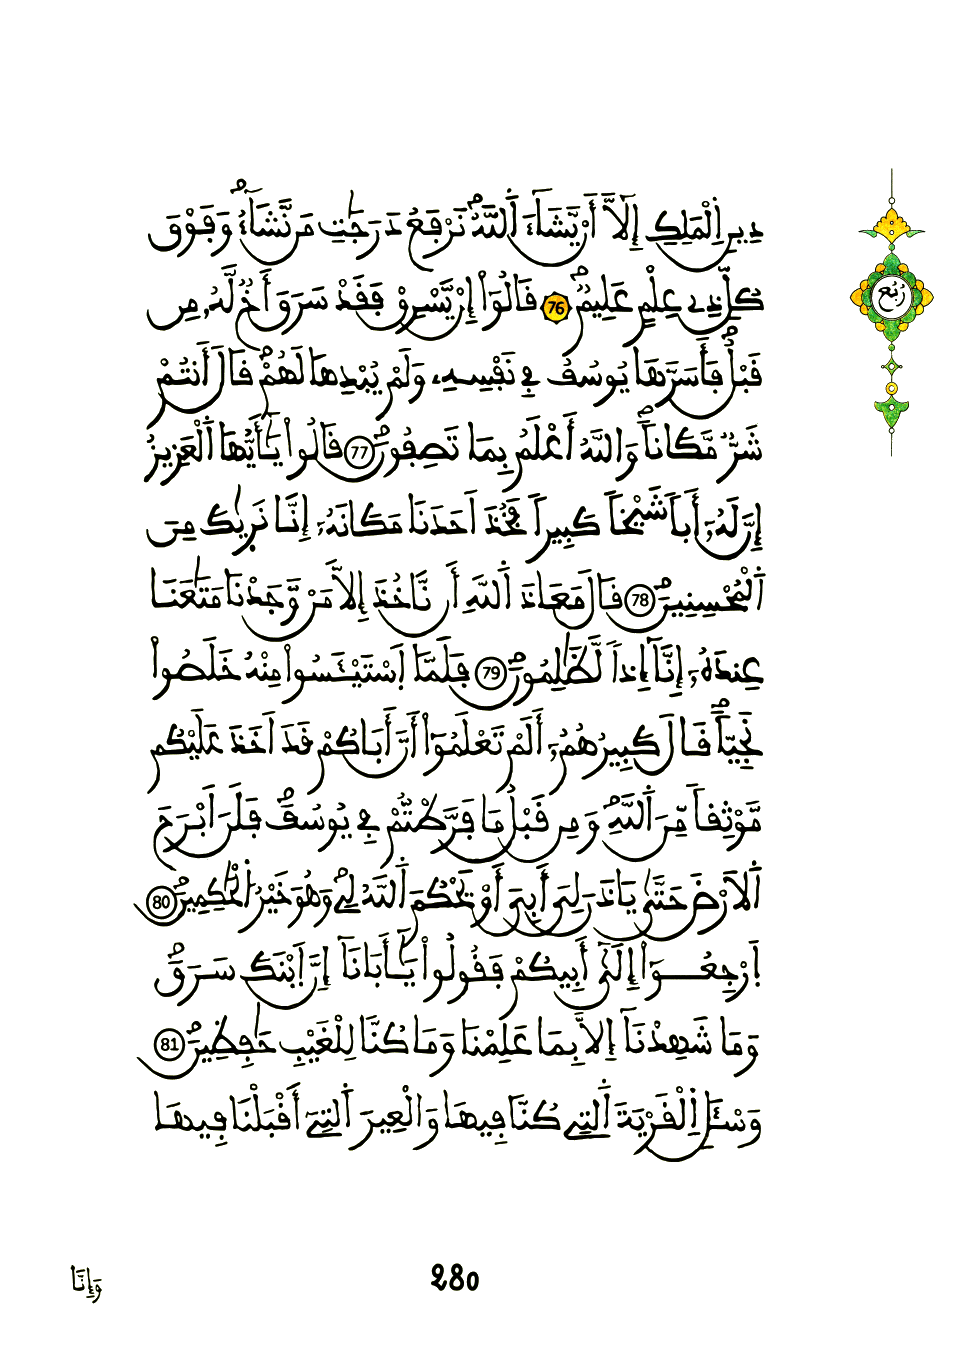 دِينِ اِ۬لْمَلِكِ إِلَّآ أَنْ يَّشَآءَ اَ۬للَّهُۖ نَرْفَعُ دَرَجَٰتِ مَن نَّشَآءُۖ وَفَوْقَ
كُلِّ ذِے عِلْمٍ عَلِيمٞۖ 76 قَالُوٓاْ إِنْ يَّسْرِقْ فَقَدْ سَرَقَ أَخٞ لَّهُۥ مِن
قَبْلُۖ فَأَسَرَّهَا يُوسُفُ فِے نَفْسِهِۦ وَلَمْ يُبْدِهَا لَهُمْۖ قَالَ أَنتُمْ
شَرّٞ مَّكَاناٗۖ وَاللَّهُ أَعْلَمُ بِمَا تَصِفُونَۖ 77 قَالُواْ يَٰٓأَيُّهَا اَ۬لْعَزِيزُ
إِنَّ لَهُۥٓ أَباٗ شَيْخاٗ كَبِيراٗ فَخُذْ أَحَدَنَا مَكَانَهُۥٓ إِنَّا نَر۪يٰكَ مِنَ
اَ۬لْمُحْسِنِينَۖ 78 قَالَ مَعَاذَ اَ۬للَّهِ أَن نَّاخُذَ إِلَّا مَنْ وَّجَدْنَا مَتَٰعَنَا
عِندَهُۥٓ إِنَّآ إِذاٗ لَّظَٰلِمُونَۖ 79 فَلَمَّا اَ۪سْتَيْـَٔسُواْ مِنْهُ خَلَصُواْ
نَجِيّاٗۖ قَالَ كَبِيرُهُمُۥٓ أَلَمْ تَعْلَمُوٓاْ أَنَّ أَبَاكُمْ قَدَ اَخَذَ عَلَيْكُم
مَّوْثِقاٗ مِّنَ اَ۬للَّهِۖ وَمِن قَبْلُ مَا فَرَّطتُّمْ فِے يُوسُفَۖ فَلَنَ اَبْرَحَ
اَ۬لَارْضَ حَتَّىٰ يَاذَنَ لِيَ أَبِيَ أَوْ يَحْكُمَ اَ۬للَّهُ لِےۖ وَهُوَ خَيْرُ اُ۬لْحَٰكِمِينَۖ 80
اَ۪رْجِعُوٓاْ إِلَىٰٓ أَبِيكُمْ فَقُولُواْ يَٰٓأَبَانَآ إِنَّ اَ۪بْنَكَ سَرَقَۖ
وَمَا شَهِدْنَآ إِلَّا بِمَا عَلِمْنَا وَمَا كُنَّا لِلْغَيْبِ حَٰفِظِينَۖ 81
وَسْـَٔلِ اِ۬لْقَرْيَةَ اَ۬لتِے كُنَّا فِيهَا وَالْعِيرَ اَ۬لتِےٓ أَقْبَلْنَا فِيهَا
رُبُع
280
وَإِنَّا